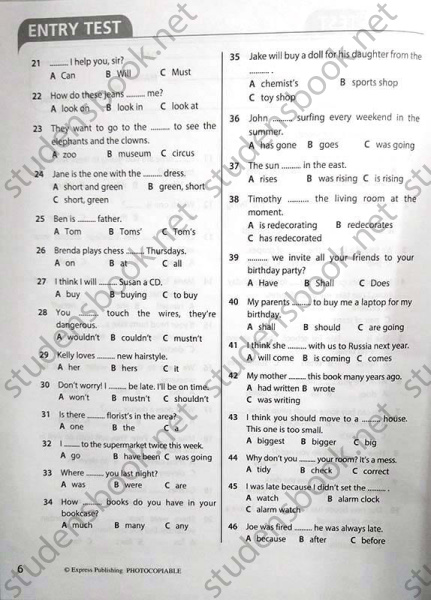 ENTRY TEST
21 ......... I help you, sir?
A Can B Will C Must
22 How do these jeans ......... me?
A look on B look in C look at
23 They want to go to the ......... to see the
elephants and the clowns.
A zoo B museum C circus
24 Jane is the one with the ......... dress.
A short and green B green, short
C short, green
25 Ben is ......... father.
A Tom B Toms' C Tom's
26 Brenda plays chess ......... Thursdays.
A on B at C all
27 I think I will ......... Susan a CD.
A buy B buying C to buy
28 You ......... touch the wires, they're
dangerous.
A wouldn't B couldn't C mustn't
29 Kelly loves ......... new hairstyle.
A her B hers C it
30 Don't worry! I ......... be late. I'll be on time.
A won't B mustn't C shouldn't
31 Is there ......... florist's in the area?
A one B the C a
32 I ......... to the supermarket twice this week.
A go B have been C was going
33 Where ......... you last night?
A was B were C are
34 How ......... books do you have in your
bookcase?
A much B many C any
35 Jake will buy a doll for his daughter from the
......... .
A chemist's B sports shop
C toy shop
36 John ......... surfing every weekend in the
summer.
A has gone B goes C was going
37 The sun ......... in the east.
A rises B was rising C is rising
38 Timothy ......... the living room at the
moment.
A is redecorating B redecorates
C has redecorated
39 ......... we invite all your friends to your
birthday party?
A Have B Shall C Does
40 My parents ......... to buy me a laptop for my
birthday.
A shall B should C are going
41 I think she ......... with us to Russia next year.
A will come B is coming C comes
42 My mother ......... this book many years ago.
A had written B wrote
C was writing
43 I think you should move to a ......... house.
This one is too small.
A biggest B bigger C big
44 Why don't you ......... your room? It's a mess.
A tidy B check C correct
45 I was late because I didn't set the ......... .
A watch B alarm clock
C alarm watch
46 Joe was fired ......... he was always late.
A because B after C before
6 © Express Publishing PHOTOCOPIABLE
studensbook.net